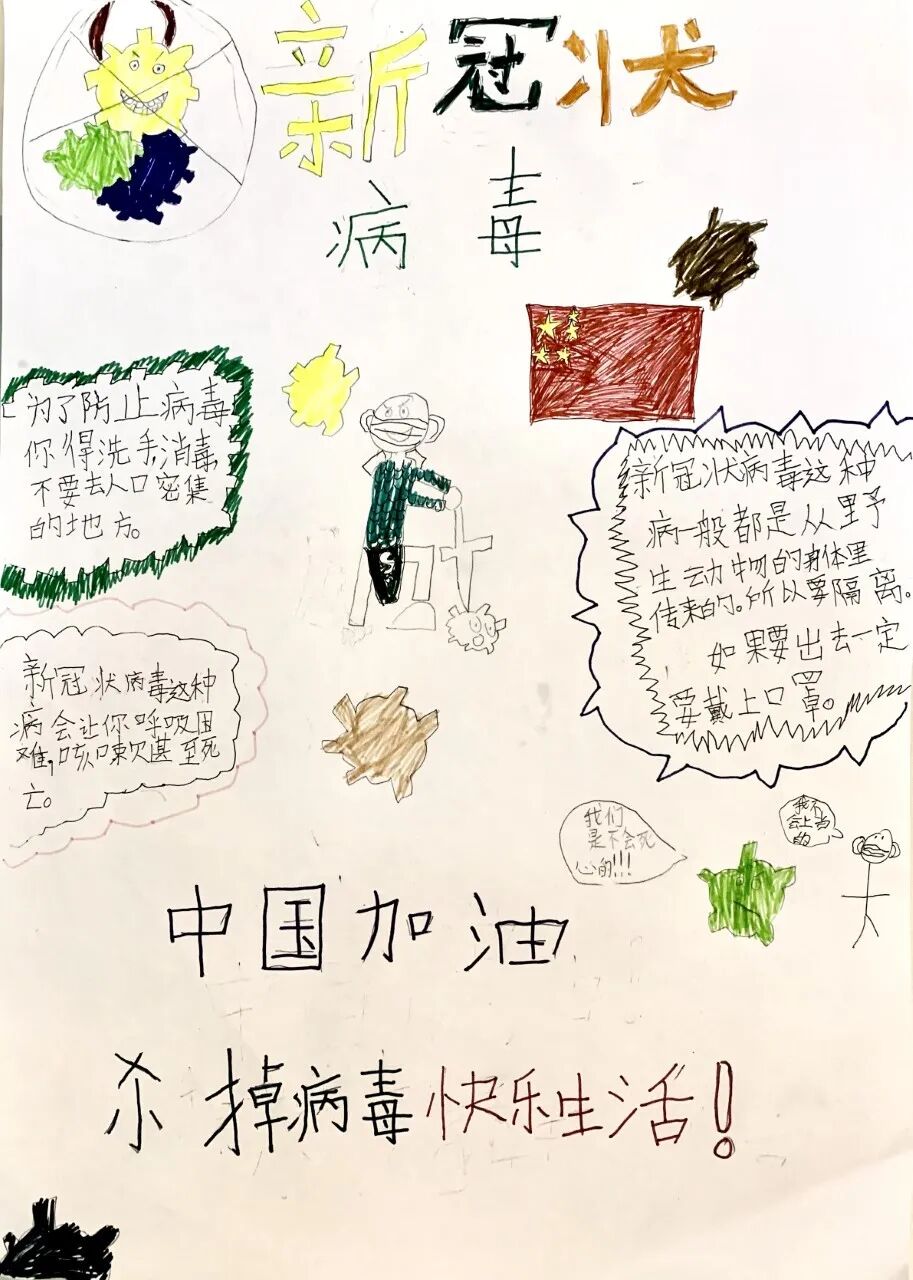 新冠状
病毒
为了防止病毒
你得洗手消毒
不要去人口密集
的地方。
新冠状病毒这种
病一般都是从野
生动物的身体里
传来的。所以要隔离。
如果要出去一定
要戴上口罩。
新冠状病毒这种
病会让你呼吸困
难,咳嗽欠甚至死
亡。
我们
是不会死
心的!!!
我不
会上当
的
中国加油
杀掉病毒快乐生活!